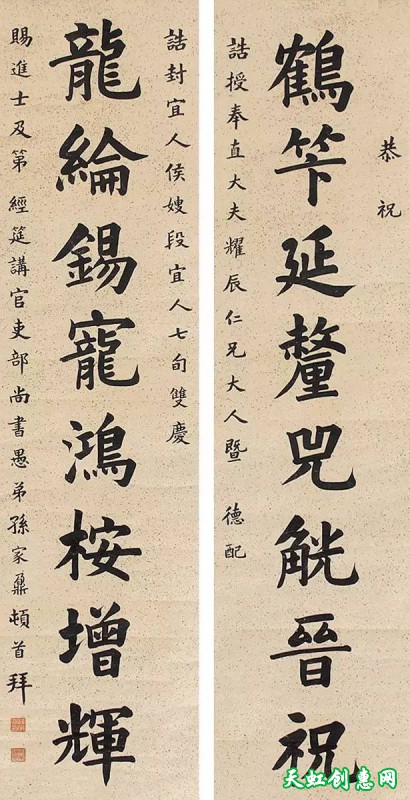 恭祝
鶴笇延釐兕觥晉祝
誥授奉直大夫耀辰仁兄大人暨 德配
誥封宜人侯嫂段宜人七旬雙慶
龍綸錫寵鴻桉增輝
賜進士及第經筵講官吏部尚書愚弟孫家鼐頓首拜
天虹创惠网